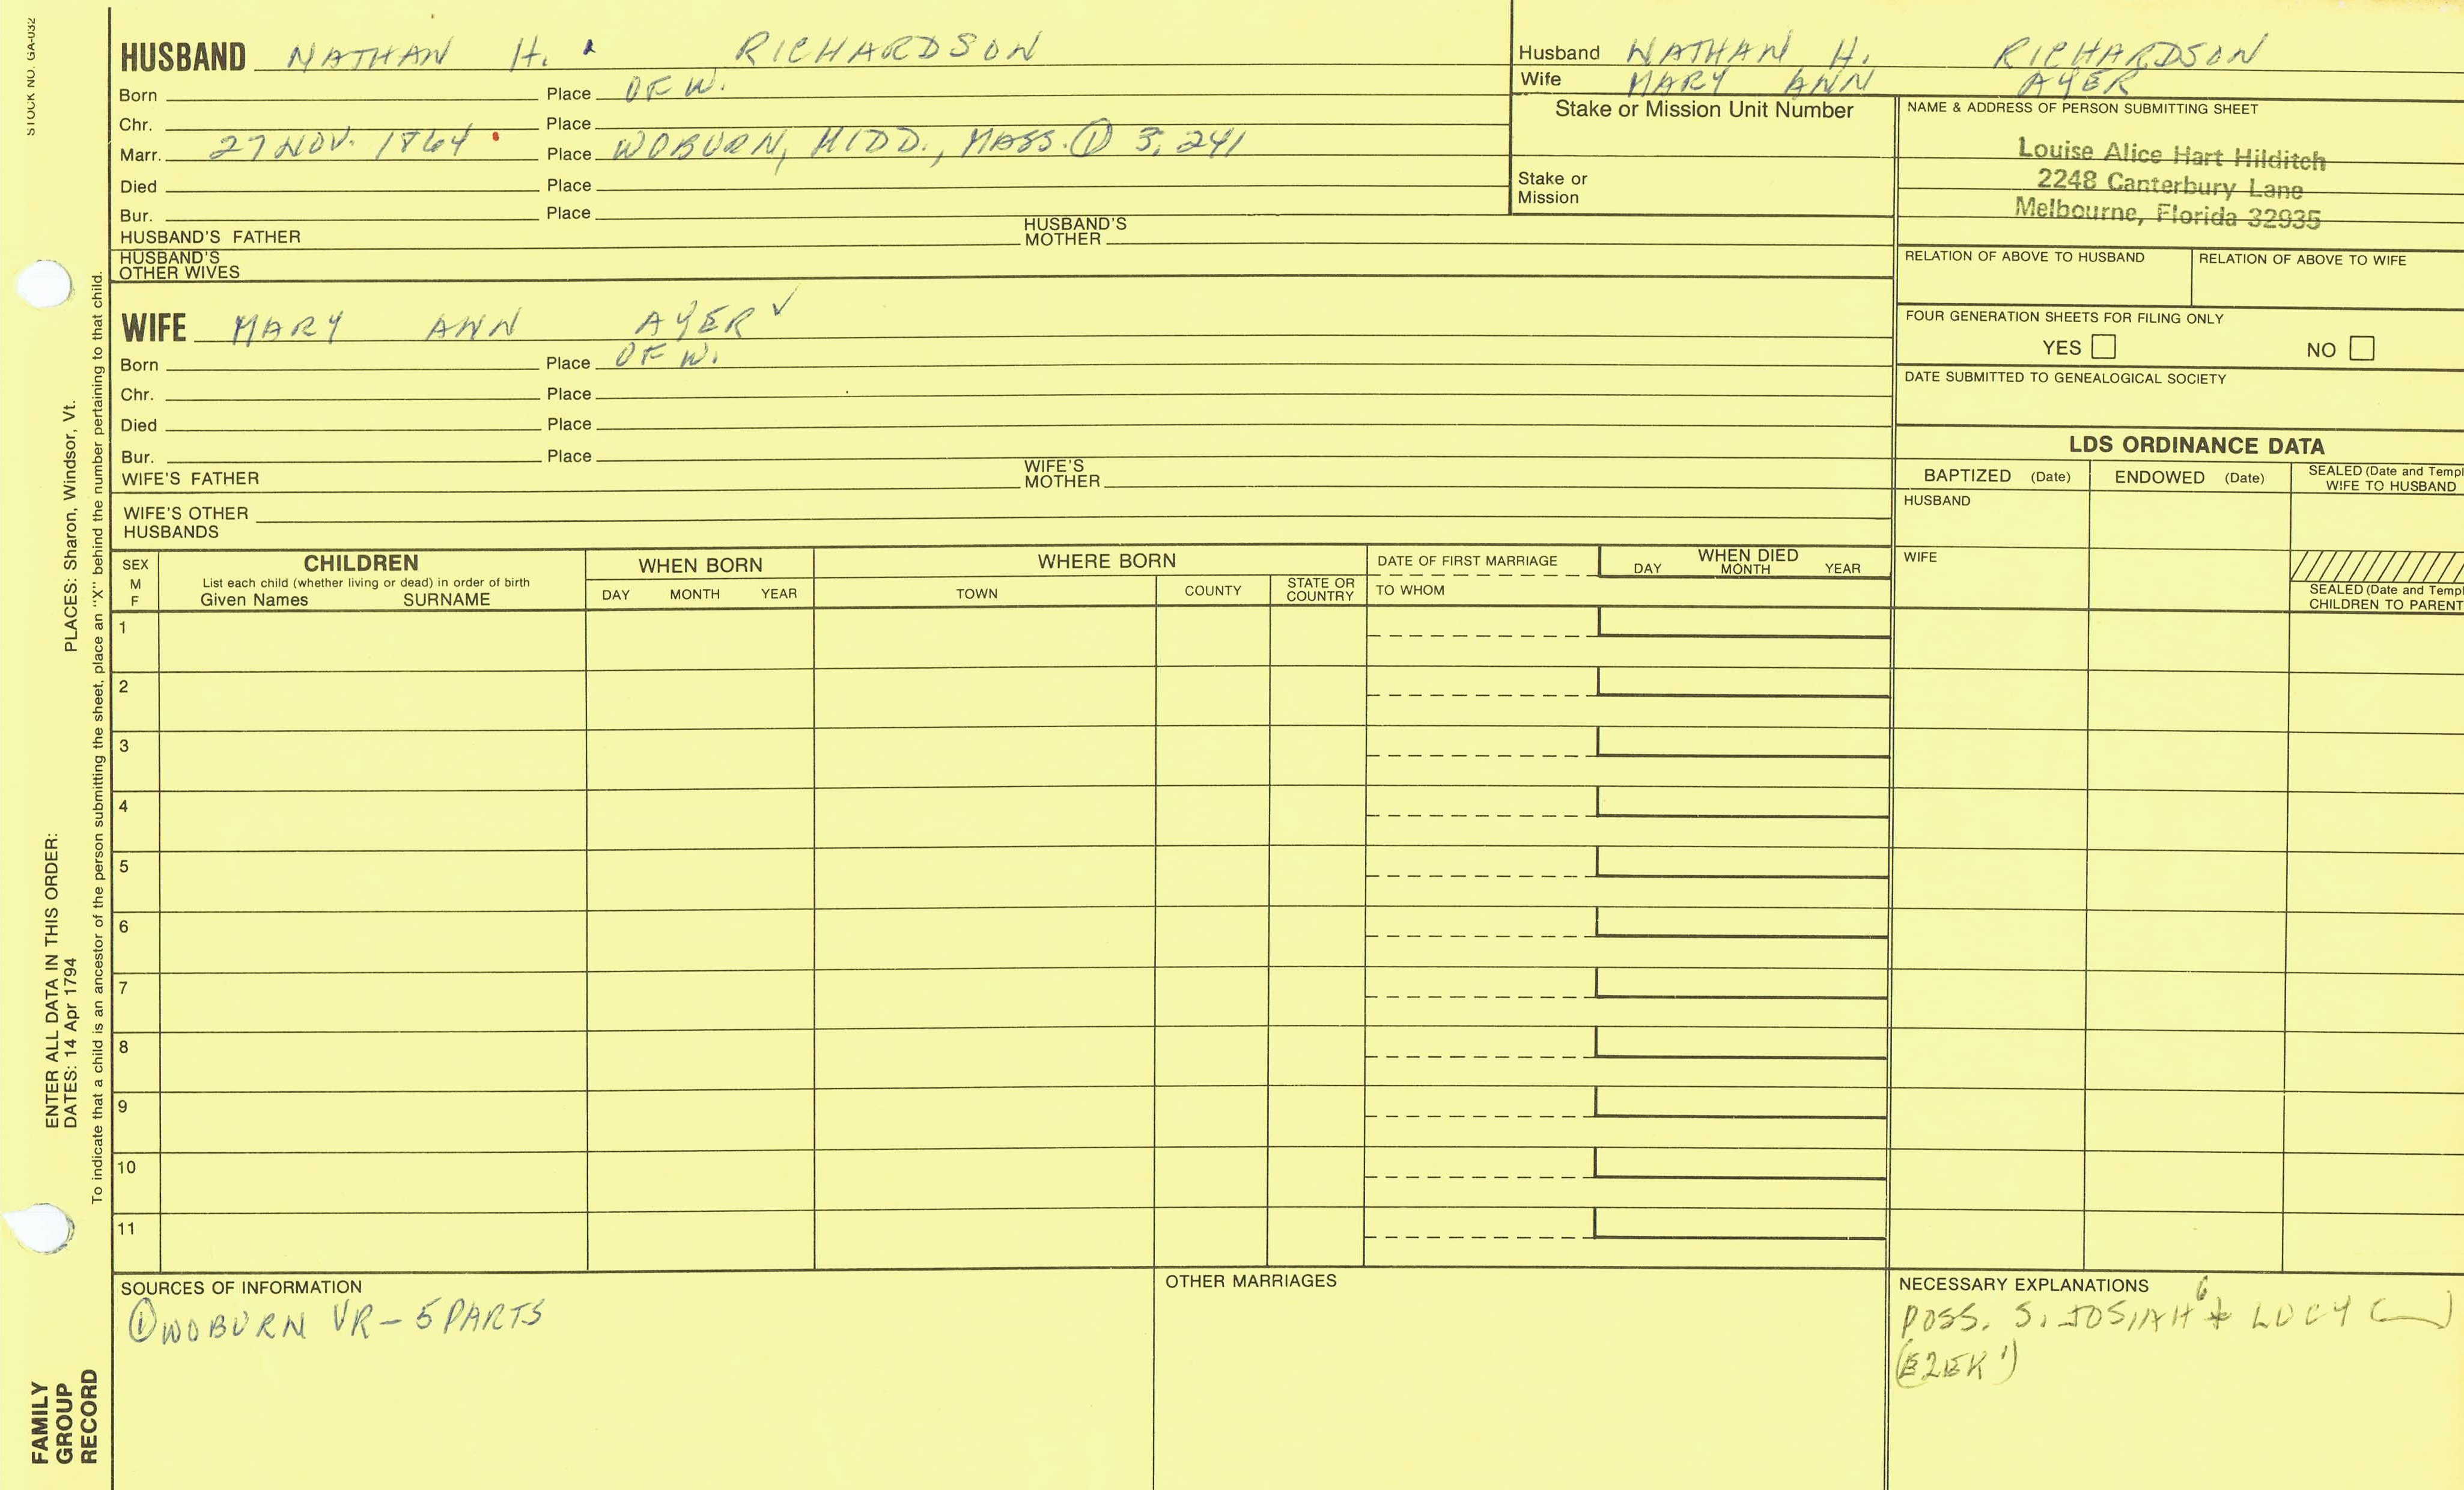 STOCK NO. GA-032
HUSBAND NATHAN H. RICHARDSON
Born Place OF W.
Chr. Place
Marr. 27 NOV. 1864 Place WOBURN, MIDD., MASS. ① 3, 241
Died Place
Bur. Place
HUSBAND'S FATHER HUSBAND'S MOTHER
HUSBAND'S OTHER WIVES
Husband NATHAN H. RICHARDSON
Wife MARY ANN AYER
Stake or Mission Unit Number
Stake or
Mission
NAME & ADDRESS OF PERSON SUBMITTING SHEET
Louise Alice Hart Hilditch
2248 Canterbury Lane
Melbourne, Florida 32935
RELATION OF ABOVE TO HUSBAND RELATION OF ABOVE TO WIFE
FOUR GENERATION SHEETS FOR FILING ONLY
YES NO
DATE SUBMITTED TO GENEALOGICAL SOCIETY
WIFE MARY ANN AYER ✓
Born Place OF W.
Chr. Place
Died Place
Bur. Place
WIFE'S FATHER WIFE'S MOTHER
WIFE'S OTHER HUSBANDS
LDS ORDINANCE DATA
BAPTIZED (Date) ENDOWED (Date) SEALED (Date and Templ
WIFE TO HUSBAND
HUSBAND
WIFE
SEALED (Date and Templ
CHILDREN TO PARENT
SEX
M
F
CHILDREN
List each child (whether living or dead) in order of birth
Given Names SURNAME
WHEN BORN
DAY MONTH YEAR
WHERE BORN
TOWN COUNTY STATE OR COUNTRY
DATE OF FIRST MARRIAGE
TO WHOM
WHEN DIED
DAY MONTH YEAR
1
2
3
4
5
6
7
8
9
10
11
SOURCES OF INFORMATION
① WOBURN VR - 5 PARTS
OTHER MARRIAGES
NECESSARY EXPLANATIONS
POSS. S. JOSIAH 6 + LUCY ( )
(EZEK 1)
ENTER ALL DATA IN THIS ORDER:
DATES: 14 Apr 1794 PLACES: Sharon, Windsor, Vt.
To indicate that a child is an ancestor of the person submitting the sheet, place an "X" behind the number pertaining to that child.
FAMILY
GROUP
RECORD